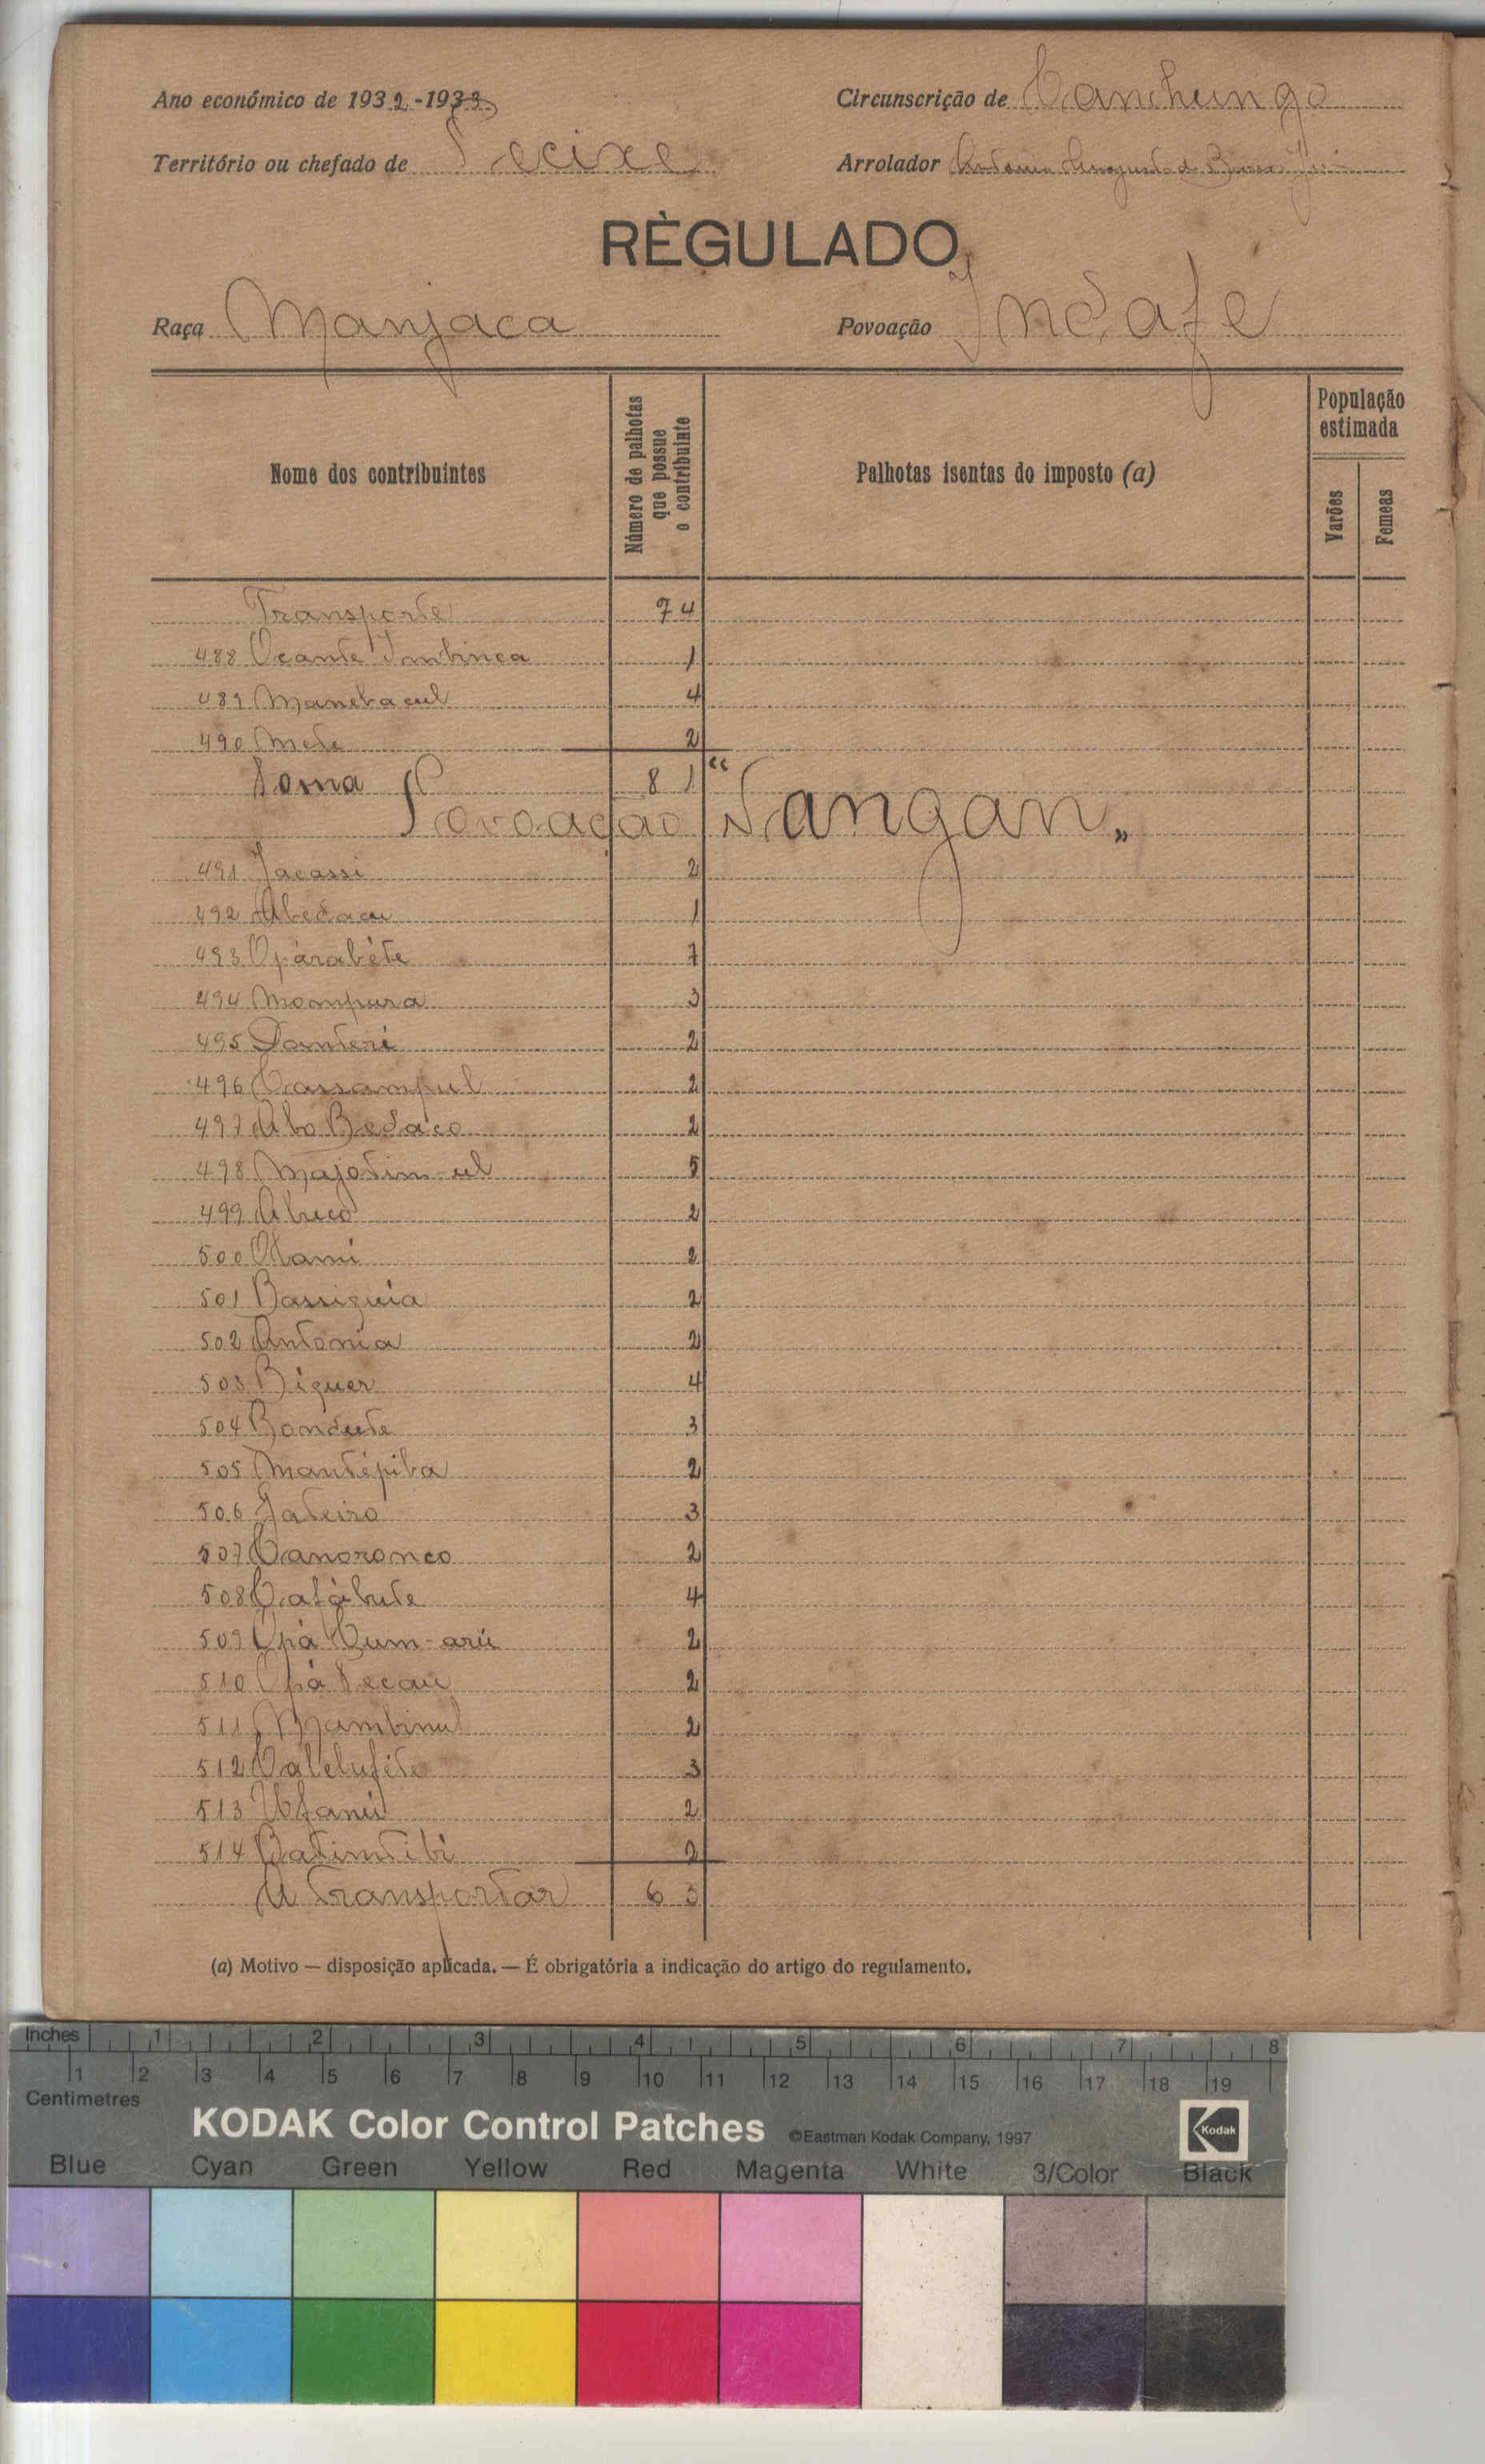 Ano económico de 1932-1933
Circunscrição de Canchungo
Território ou chefado de Pecixe
Arrolador António Augusto de Barros
RÈGULADO
Raça Manjaca
Povoação Indafe
Nome dos contribuintes
Número de palhotas que possue o contribuinte
Palhotas isentas do imposto (a)
População estimada
Varões
Femeas
Transporte 74
488 Ocante Imbinca 1
489 Manebacul 4
490 Mete 2
Soma 81
Povoação "Tangan"
491 Jacassi 2
492 Abedacu 1
493 Opárabéte 7
494 Mompura 3
495 Domteri 2
496 Cassampul 2
497 Abo Bedaco 2
498 Majotim-ul 5
499 Abuco 2
500 Otami 2
501 Bassiguia 2
502 Antonia 2
503 Biguer 4
504 Bondute 3
505 Mantépiba 2
506 Jateiro 3
507 Canoronco 2
508 Catábute 4
509 Opá Cum-arú 2
510 Opá Secau 2
511 Mambinul 2
512 3
513 Ufanú 2
514 Batimtibi 2
A Transportar 63
(a) Motivo — disposição aplicada. — É obrigatória a indicação do artigo do regulamento.
Inches 1 2 3 4 5 6 7 8
1 2 3 4 5 6 7 8 9 10 11 12 13 14 15 16 17 18 19
Centimetres
KODAK Color Control Patches ©Eastman Kodak Company, 1997 Kodak
Blue Cyan Green Yellow Red Magenta White 3/Color Black